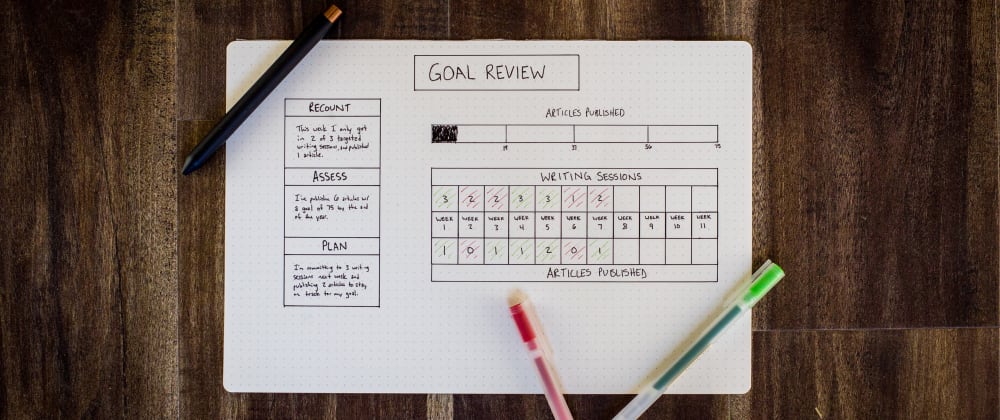 GOAL REVIEW
RECOUNT
This week I only got
in 2 of 3 targeted
writing sessions, and published
1 article.
ASSESS
I've publish 6 articles w/
a goal of 75 by the end
of the year.
PLAN
I'm committing to 3 writing
sessions next week and
publishing 2 articles to stay
on track for my goal.
ARTICLES PUBLISHED
19 37 56 75
WRITING SESSIONS
3 2 2 3 3 1 2
WEEK WEEK WEEK WEEK WEEK WEEK WEEK WEEK WEEK WEEK WEEK
1 2 3 4 5 6 7 8 9 10 11
1 0 1 1 2 0 1
ARTICLES PUBLISHED